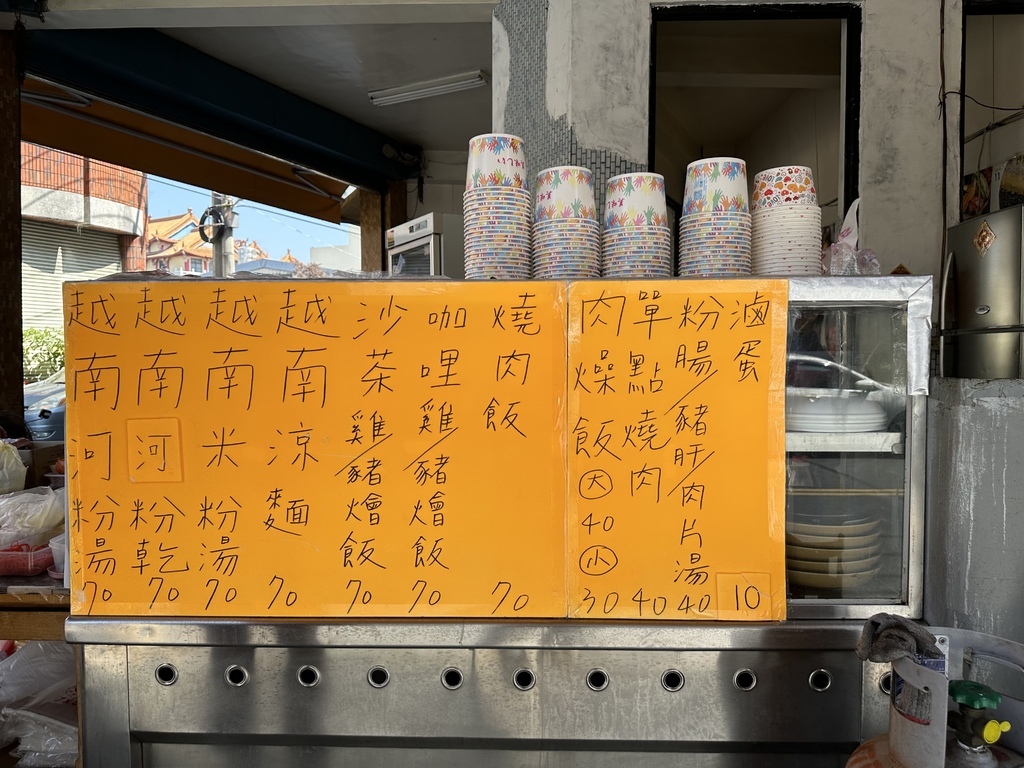 越南河粉湯 70
越南河粉乾 70
越南米粉湯 70
越南涼麵 70
沙茶雞/豬燴飯 70
咖哩雞/豬燴飯 70
燒肉飯 70
肉燥飯 大 40 小 30
單點燒肉 40
粉腸/豬肝/肉片湯 40
滷蛋 10